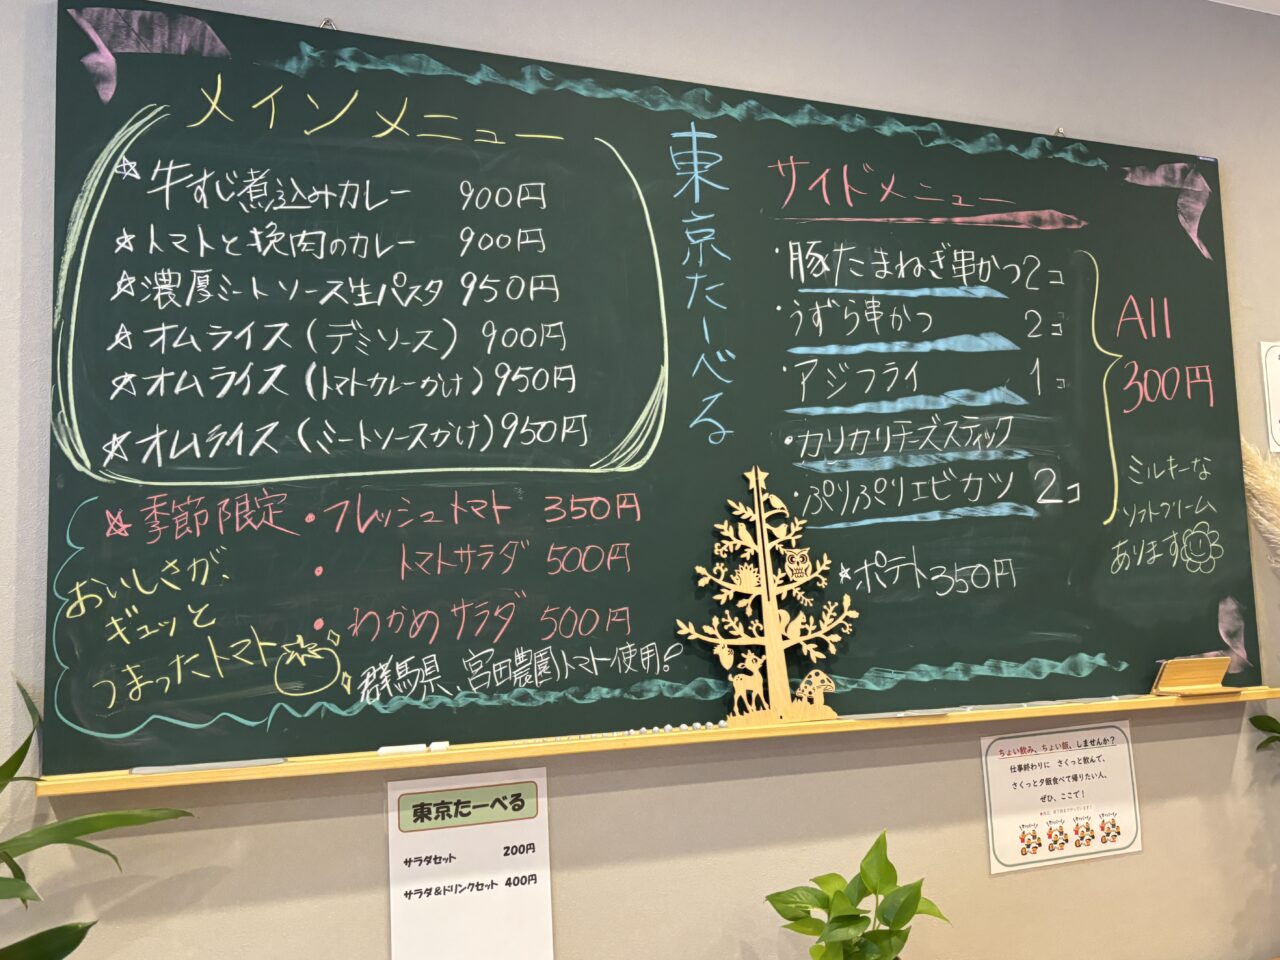 メインメニュー
☆牛すじ煮込みカレー 900円
☆トマトと挽肉のカレー 900円
☆濃厚ミートソース生パスタ 950円
☆オムライス（デミソース） 900円
☆オムライス（トマトカレーかけ） 950円
☆オムライス（ミートソースかけ） 950円
☆季節限定・フレッシュトマト 350円
・トマトサラダ 500円
・わかめサラダ 500円
おいしさが、
ギュッと
つまったトマト
群馬県、宮田農園トマト使用!
東京たーべる
サイドメニュー
・豚たまねぎ串かつ 2コ
・うずら串かつ 2コ
・アジフライ 1コ
・カリカリチーズスティック
・ぷりぷりエビカツ 2コ
All
300円
☆ポテト 350円
ミルキーな
ソフトクリーム
あります
東京たーべる
サラダセット 200円
サラダ＆ドリンクセット 400円
ちょい飲み、ちょい飯、しませんか？
仕事終わりに さくっと飲んで、
さくっと夕飯食べて帰りたい人、
ぜひ、ここで！